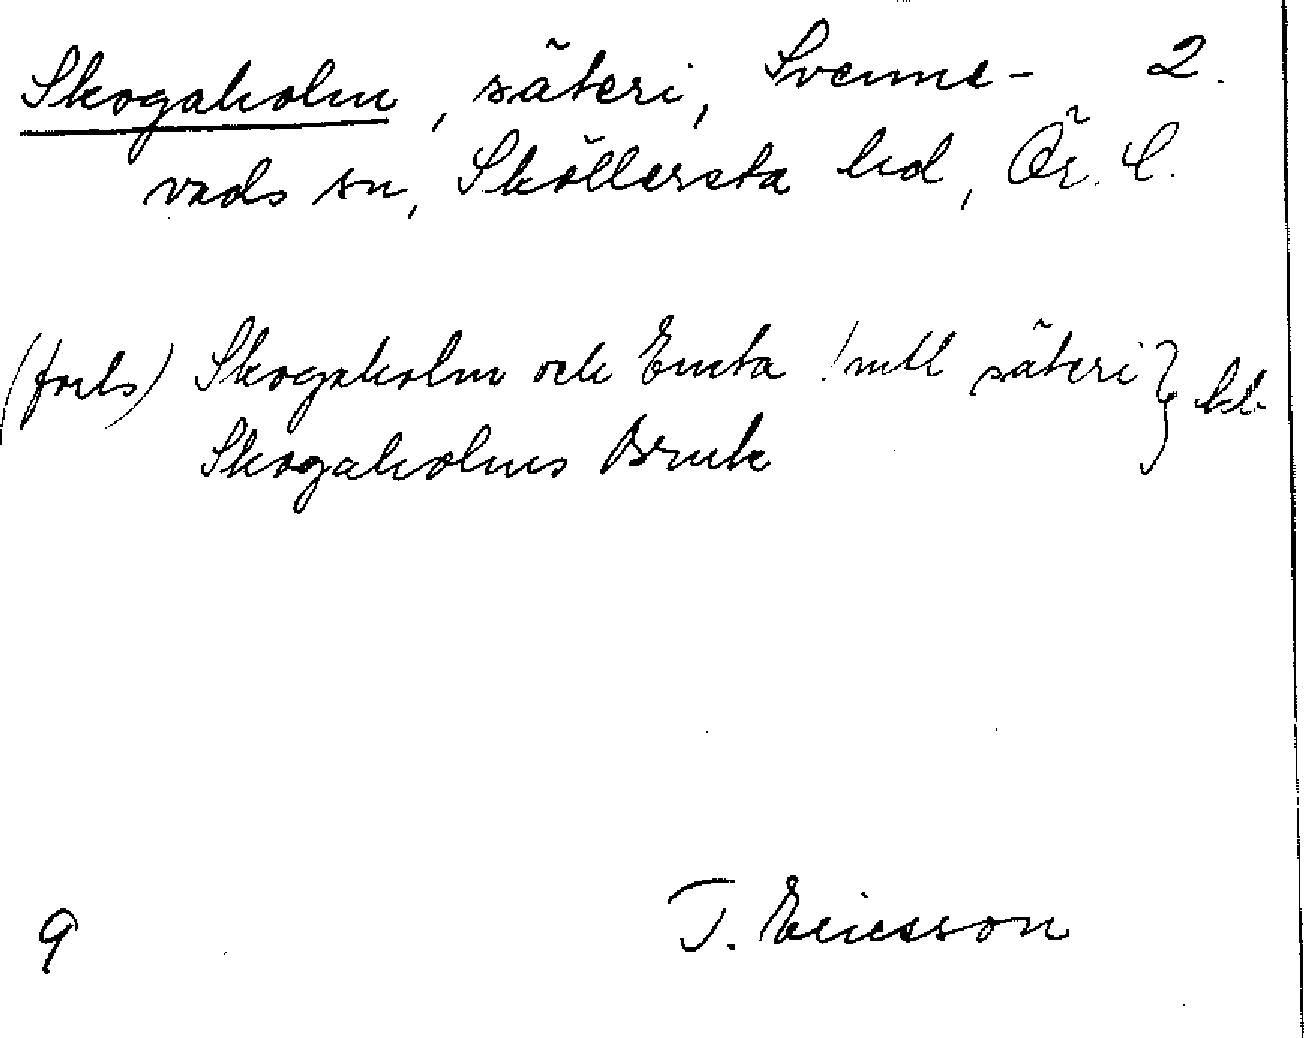 Skogaholm, säteri, Svenne- 2.
vads sn, Sköllersta hd, Ör. L.
(forts) Skogaholm och Emta 1 mtl säteri } kb
Skogaholms Bruk
9 T. Ericsson